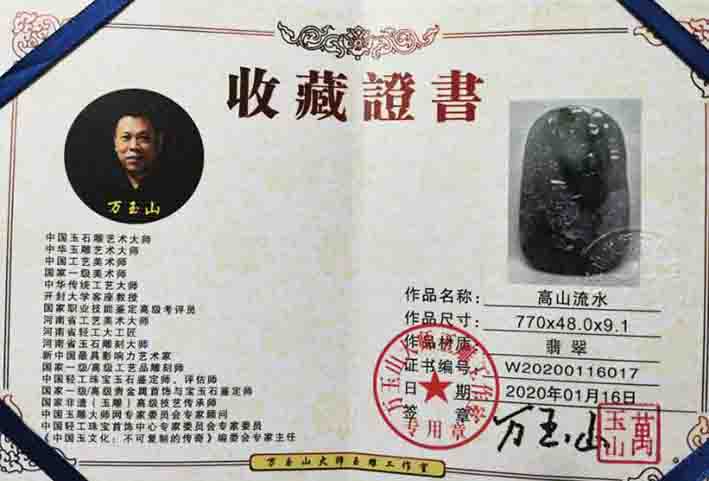 收藏證書
万玉山
中国玉石雕艺术大师
中华玉雕艺术大师
中国工艺美术师
国家一级美术师
中华传统工艺大师
开封大学客座教授
国家职业技能鉴定高级考评员
河南省工艺美术大师
河南省轻工大工匠
河南省玉石雕刻大师
新中国最具影响力艺术家
国家一级/高级工艺品雕刻师
中国轻工珠宝玉石鉴定师、评估师
国家一级/高级贵金属首饰与宝玉石鉴定师
国家非遗（玉雕）高级技艺传承师
中国玉雕大师网专家委员会专家顾问
中国轻工珠宝首饰中心专家委员会专家委员
《中国玉文化：不可复制的传奇》编委会专家主任
作品名称： 高山流水
作品尺寸： 770x48.0x9.1
作品材质： 翡翠
证书编号： W20200116017
日 期： 2020年01月16日
签 章： 万玉山
萬玉山
万玉山大师玉雕工作室
专用章
万玉山大师玉雕工作室